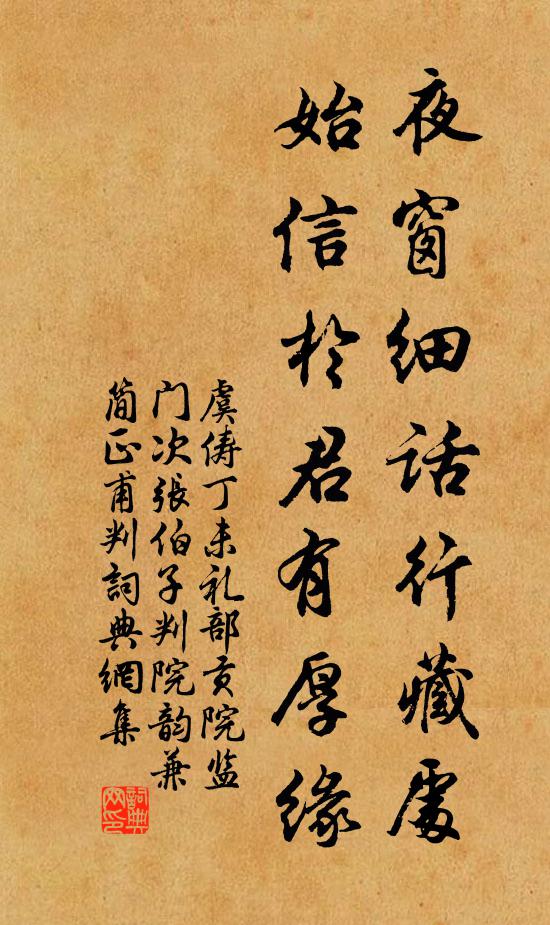 夜窗细话行藏處
始信於君有厚缘
虞俦丁未礼部贡院监
门次張伯子判院韵兼
简正甫判詞典網集
詞典網印